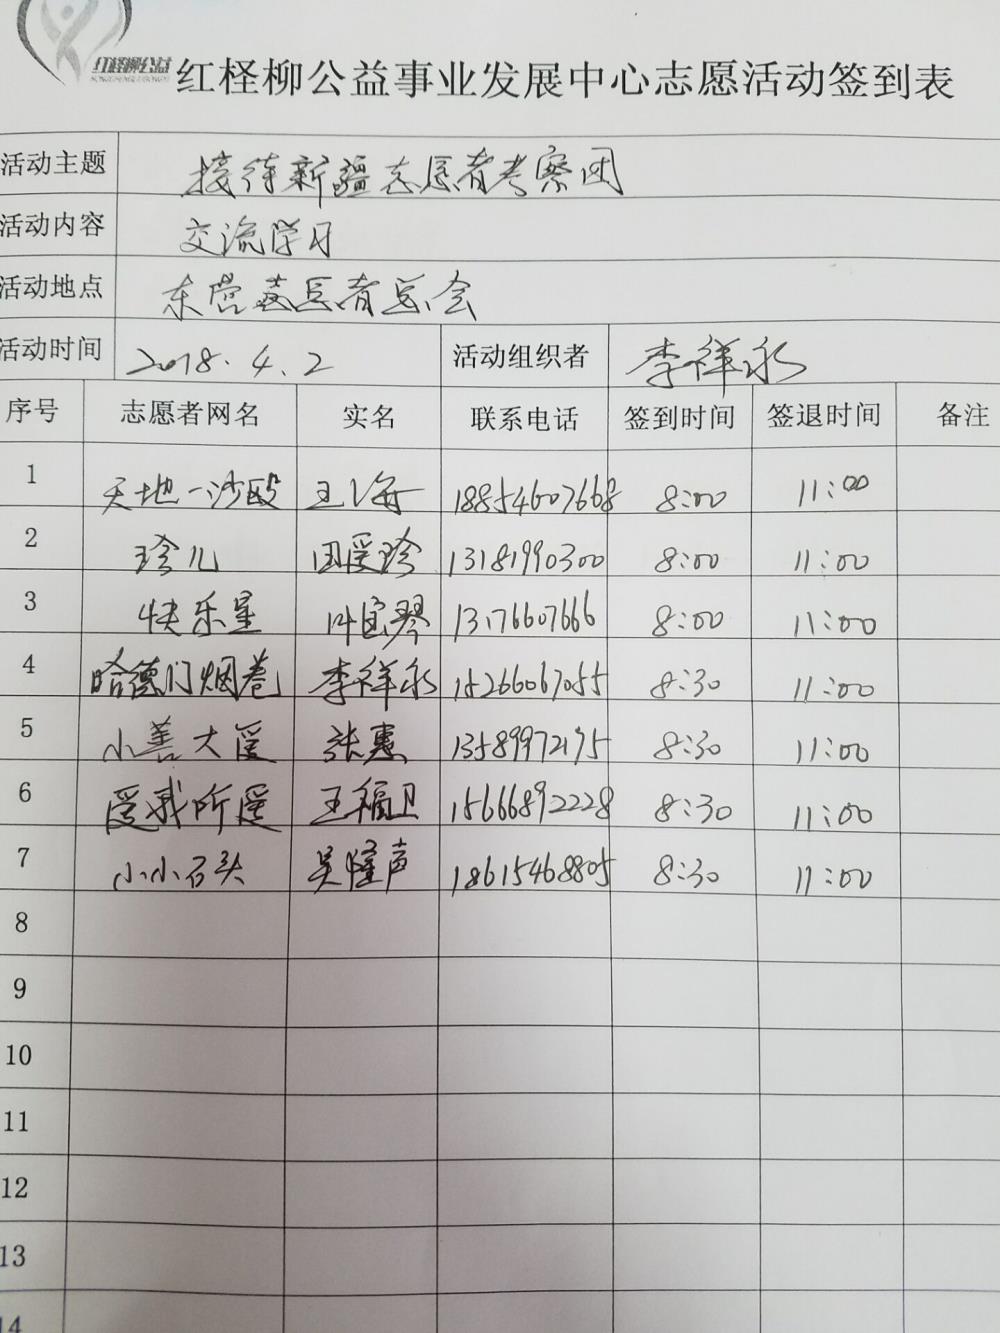 红柽柳公益
红柽柳公益事业发展中心志愿活动签到表
活动主题 接待新疆志愿者考察团
活动内容 交流学习
活动地点 东营志愿者总会
活动时间 2018.4.2 活动组织者 李祥永
序号 志愿者网名 实名 联系电话 签到时间 签退时间 备注
1 天地一沙鸥 王海 18854607668 8:00 11:00
2 珍儿 田爱珍 13181990300 8:00 11:00
3 快乐星 叶宝琴 13176607666 8:00 11:00
4 哈德门烟卷 李祥永 15266067055 8:30 11:00
5 小善大爱 张惠 13589972175 8:30 11:00
6 爱我所爱 王福卫 15666892228 8:30 11:00
7 小小石头 吴隆声 18615468805 8:30 11:00
8
9
10
11
12
13
14